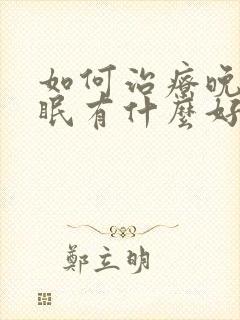 如何治療晚
眠有什麼好
鄭立明